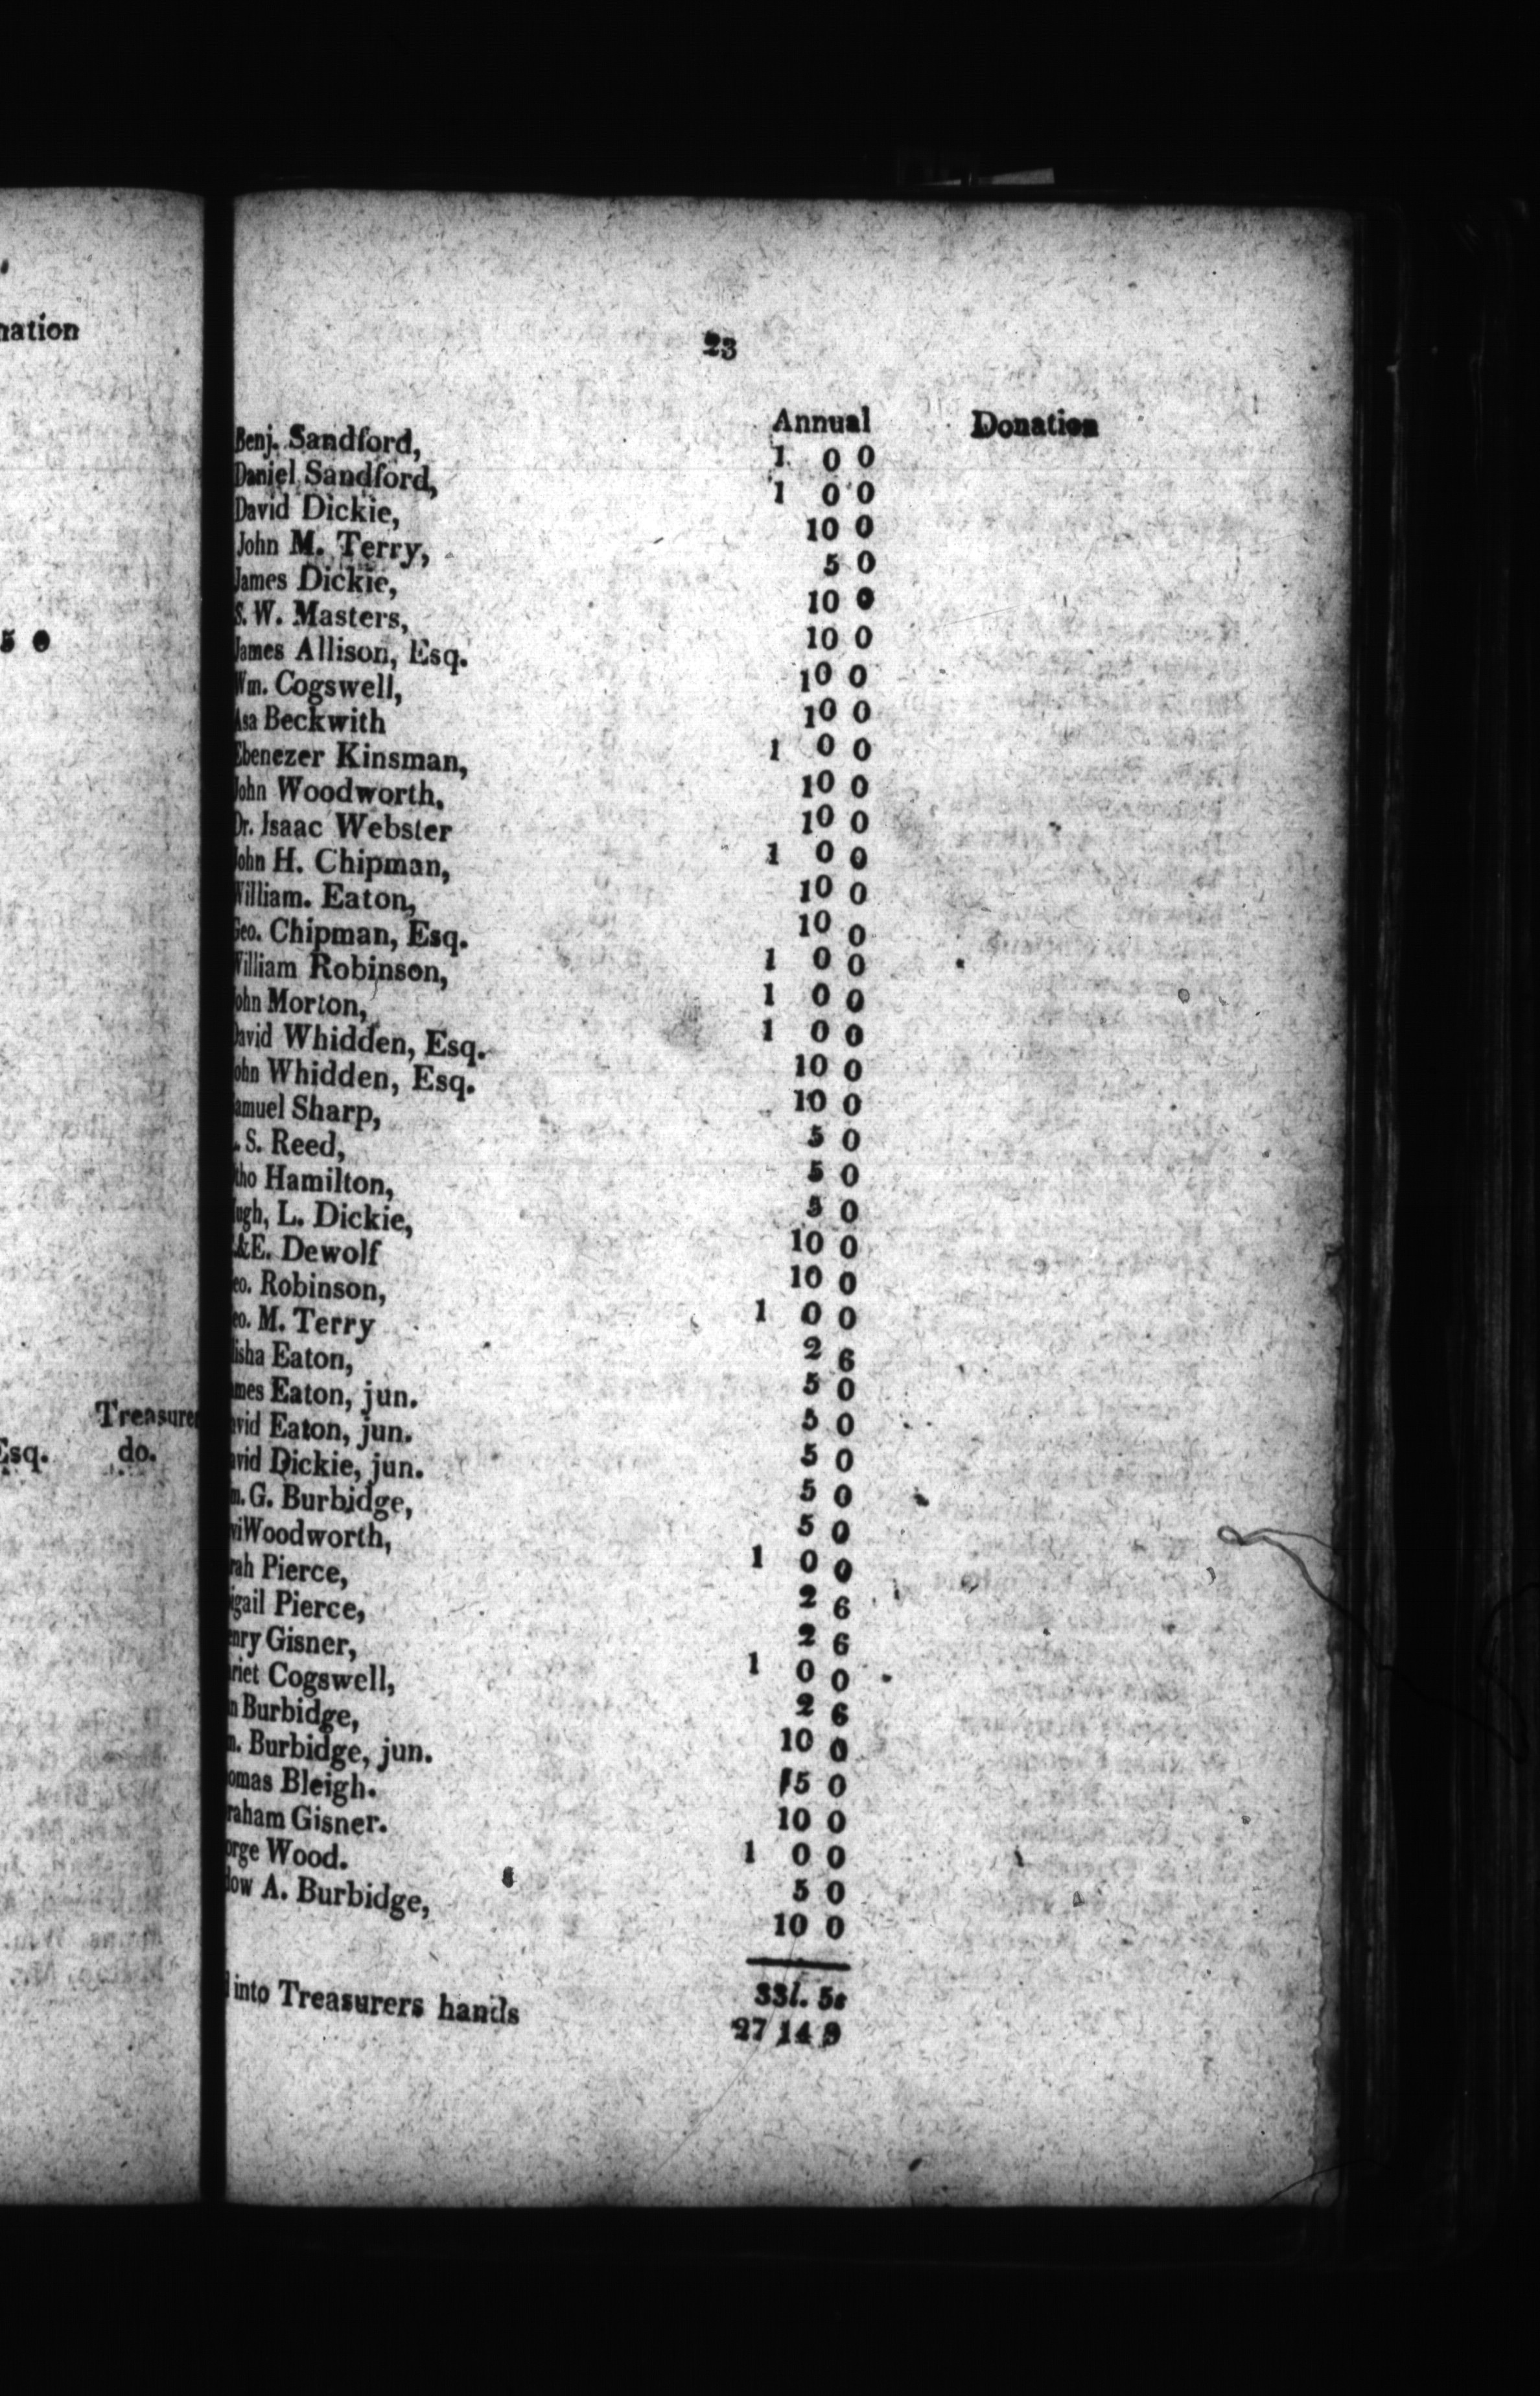 nation
5 0
Treasurer
Esq. do.
23
Annual Donation
Benj. Sandford, 1 0 0
Daniel Sandford, 1 0 0
David Dickie, 10 0
John M. Terry, 5 0
James Dickie, 10 0
S. W. Masters, 10 0
James Allison, Esq. 10 0
Wm. Cogswell, 10 0
Asa Beckwith 1 0 0
Ebenezer Kinsman, 10 0
John Woodworth, 10 0
Dr. Isaac Webster 1 0 0
John H. Chipman, 10 0
William. Eaton, 10 0
Geo. Chipman, Esq. 1 0 0
William Robinson, 1 0 0
John Morton, 1 0 0
David Whidden, Esq. 10 0
John Whidden, Esq. 10 0
amuel Sharp, 5 0
. S. Reed, 5 0
tho Hamilton, 5 0
ugh, L. Dickie, 10 0
&E. Dewolf 10 0
eo. Robinson, 1 0 0
eo. M. Terry 2 6
lisha Eaton, 5 0
mes Eaton, jun. 5 0
avid Eaton, jun. 5 0
avid Dickie, jun. 5 0
m. G. Burbidge, 5 0
vi Woodworth, 1 0 0
rah Pierce, 2 6
igail Pierce, 2 6
enry Gisner, 1 0 0
riet Cogswell, 2 6
n Burbidge, 10 0
. Burbidge, jun. 15 0
omas Bleigh. 10 0
raham Gisner. 1 0 0
orge Wood. 5 0
dow A. Burbidge, 10 0
33l. 5s
into Treasurers hands 27 14 9